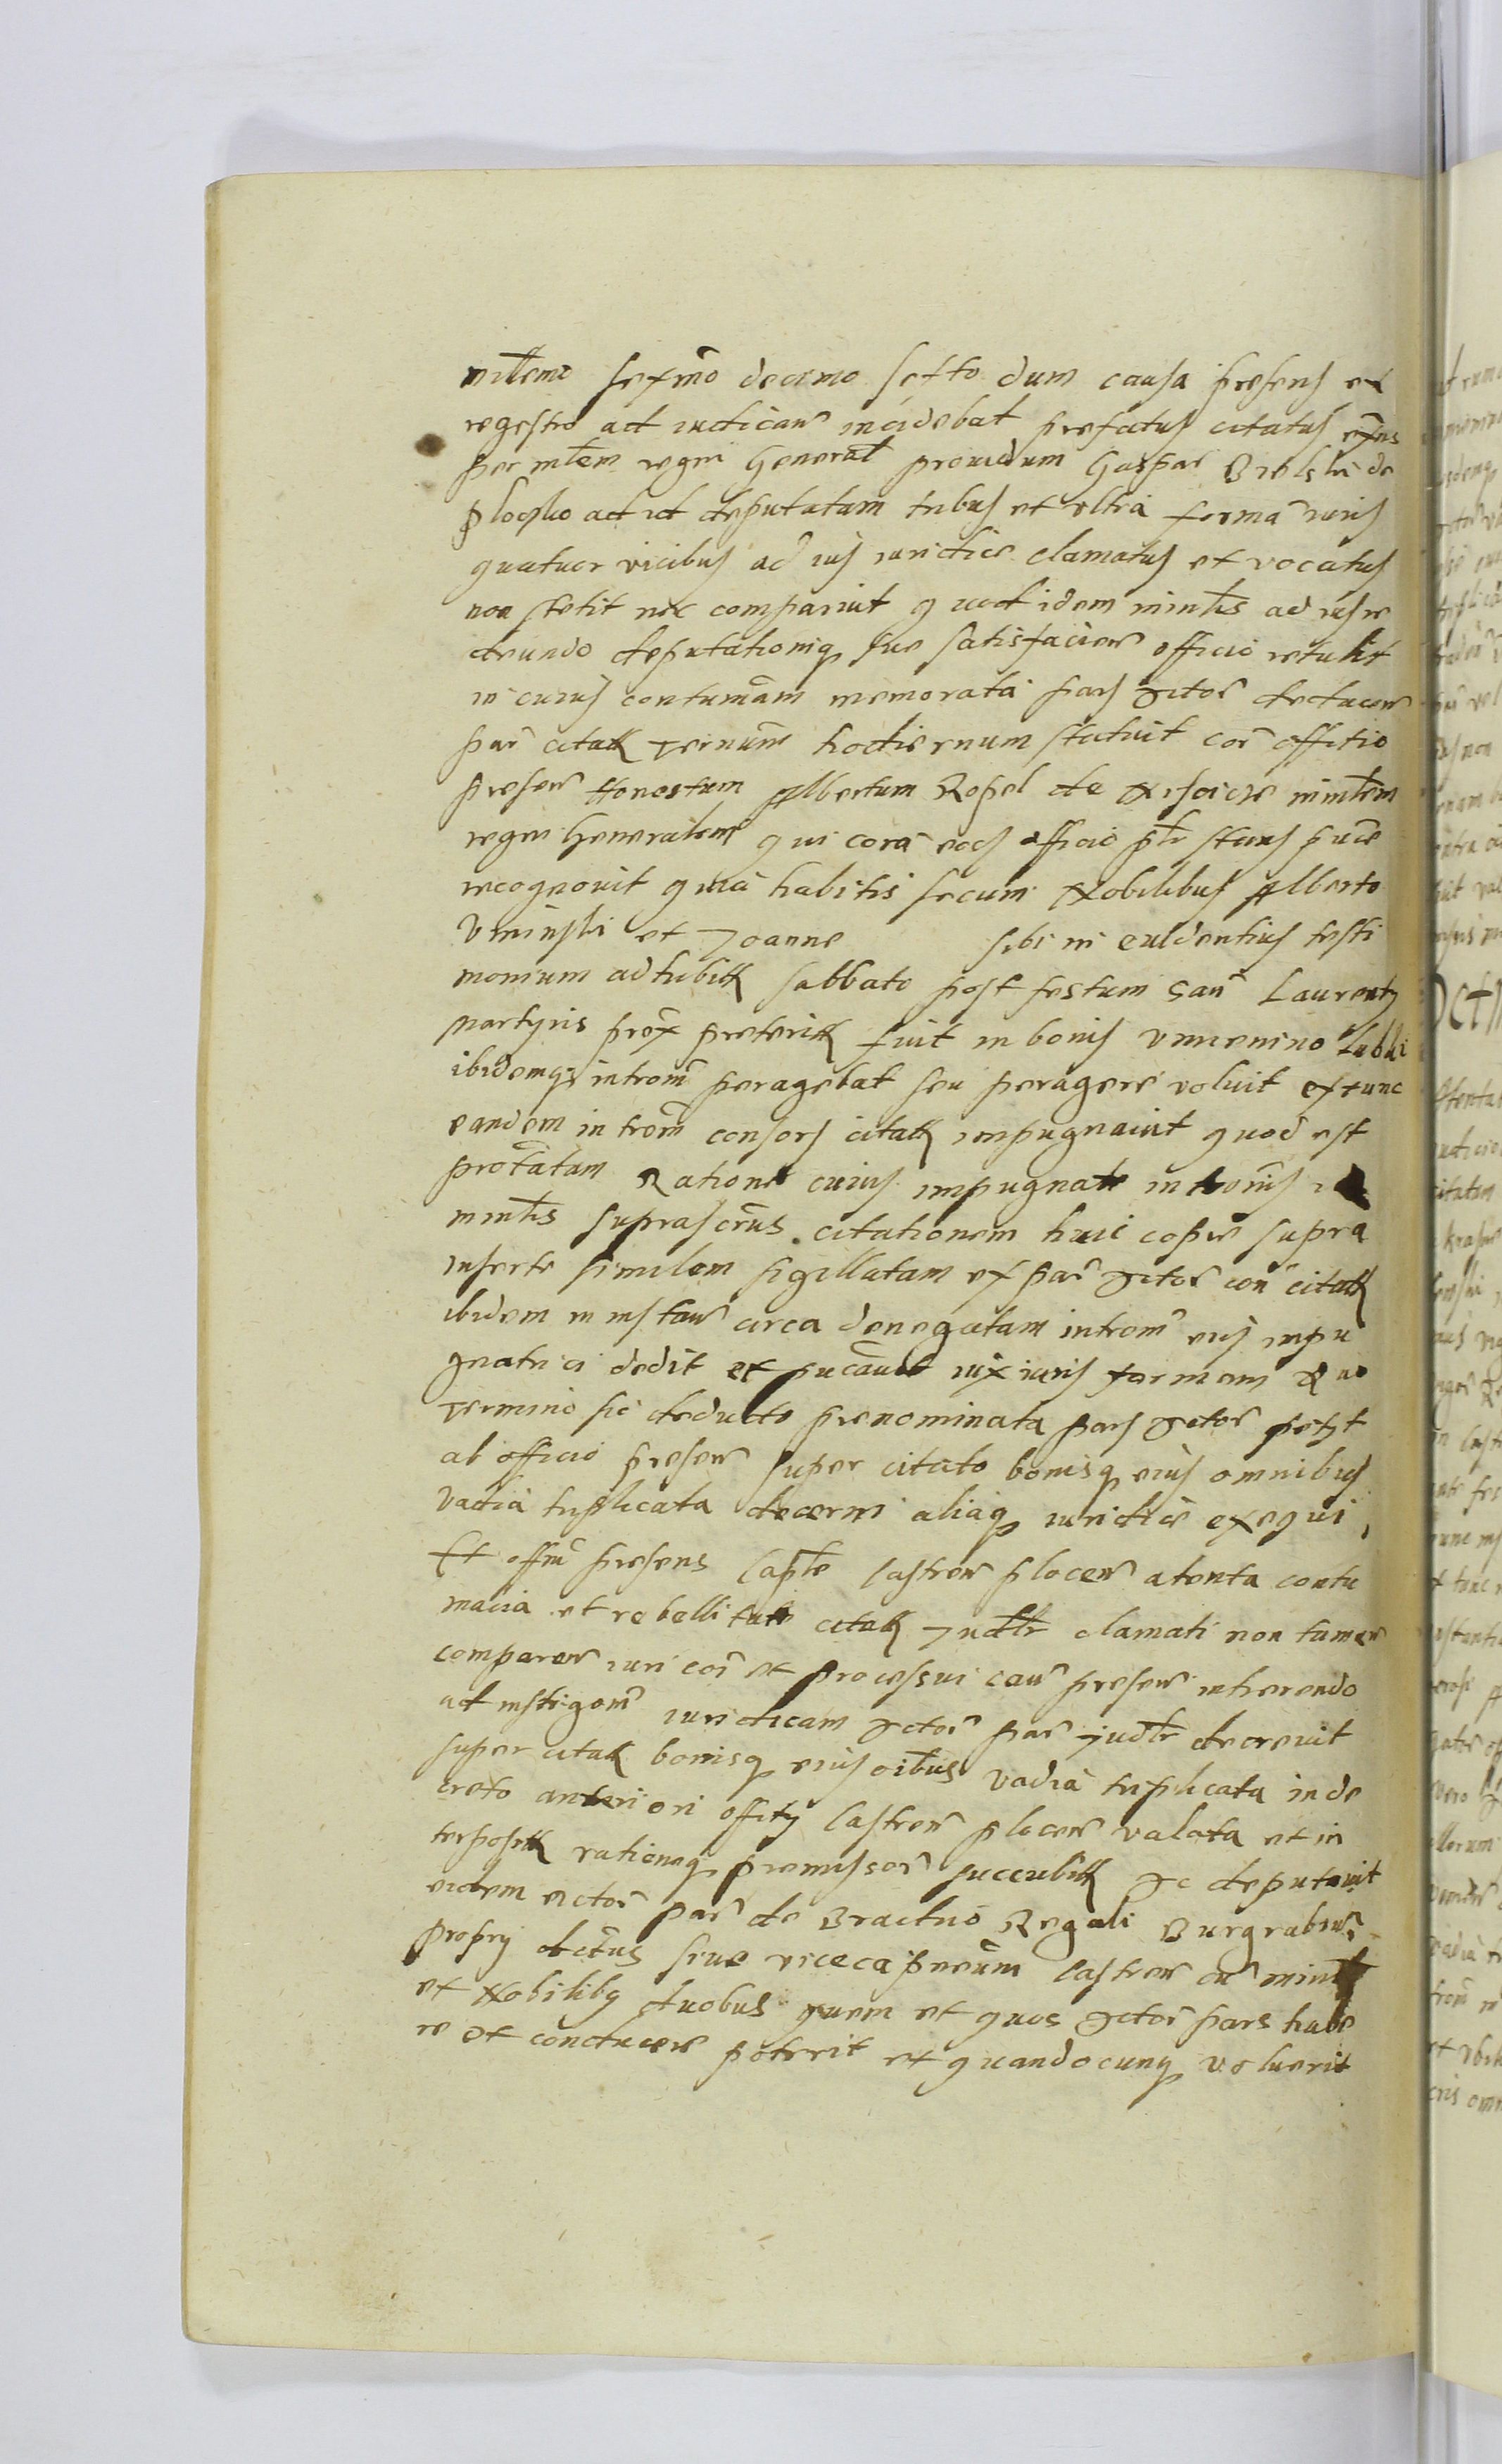 millemo sexmo decimo sexto dum causa presens ex
regestro ad iudican incidebat prefatus citatus extus
per mlem regni general prouidum Gaspar Bielski de
Plocko ad id deputatum tribus et vltra forma iuris
quatuor vicibus ad ius iuridice clamatus et vocatus
non stetit nec comparuit quod idem mintlis ad ius re
deundo deputationiq sue satisfacien officio retulit
in cuius contumam memorata pars actor deducen
par citati terminum hodiernum statuit cor offitio
presen Honestum Albertum Ropel de ministlem
regni Generalem qui cora eod officio pltr stans puce
recognouit quia habitis secum Nobilibus Alberto
Vminski et Joanne sibi in euidentius testi
monium adhibitis sabbato post festum San Laurenty
martyris prox preteriti fuit in bonis Vmienino Lubki
ibidemq introm peragebat seu peragere voluit extunc
eandem introm consors citati impugnauit quod est
protatam Ratione cuius impugnate intromis
mintlis suprascrius citationem huic copie supra
inserte similem sigillatam ex par actor con citati
ibidem in instan circa denegatam introm eius inpu
gnatrici dedit et pucauit iux iuris formam Quo
termino sic deducto prenominata pars actor petyt
ab officio presen super citato bonisq eius omnibus
vadia triplicata decerni aliaq iuridice exequi,
Et offm presens Captle Castren plocen atenta contu
macia et rebellitate citati judltr clamati non tamen
comparen iuri cor et processui cau presen inherendo
ad instigom iuridicam actor par judltr decreuit
super citati bonisq eius oibus vadia triplicata in de
creto anteriori offity Castren plocen valata et in
terpositi rationeq premissor succubiti ac deputauit
eidem actor par de Brachio Regali Burgrabium
propry obitus siue vicecapneum Castren cu mintli
et Nobilibq duobus quem et quos actor pars habe
re et conducere poterit et quandocunq voluerit